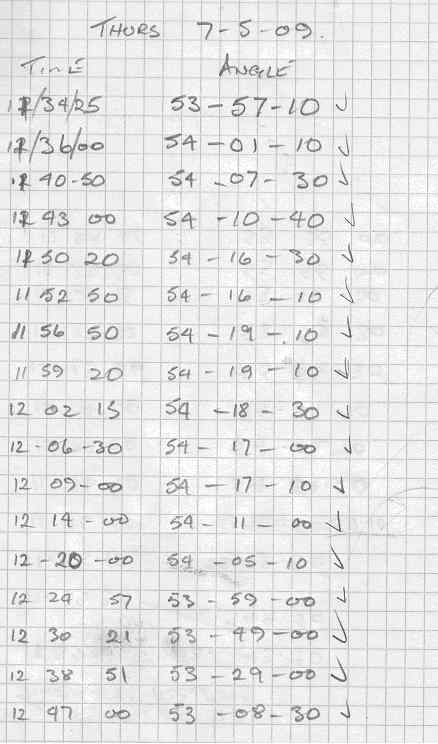 THURS 7-5-09.
TIME ANGLE
11/34/25 53-57-10 ✓
11/36/00 54-01-10 ✓
11 40-50 54-07-30 ✓
11 43 00 54-10-40 ✓
11 50 20 54-16-30 ✓
11 52 50 54-16-10 ✓
11 56 50 54-19-10 ✓
11 59 20 54-19-10 ✓
12 02 15 54-18-30 ✓
12-06-30 54-17-00 ✓
12 09-00 54-17-10 ✓
12 14-00 54-11-00 ✓
12-20-00 54-05-10 ✓
12 24 57 53-59-00 ✓
12 30 21 53-49-00 ✓
12 38 51 53-29-00 ✓
12 47 00 53-08-30 ✓